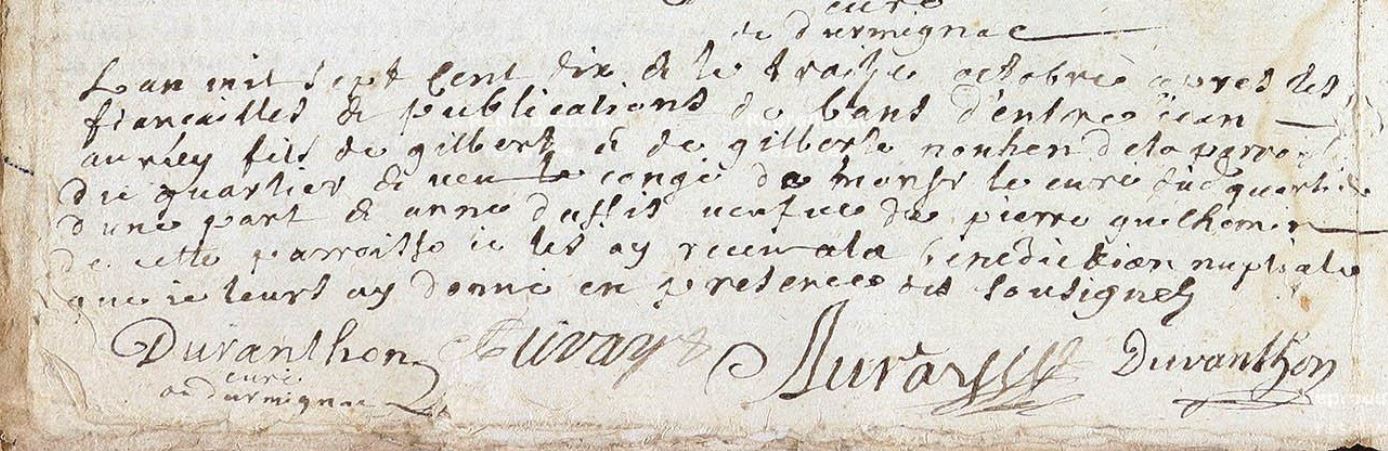 curé
de durmignac
L an mil sept Cent dix & le traize octobre apres les
fiancailles & publications de bans d'entre iean
aurley fils de gilbert & de gilberte nouhen de la parro
du quartier & veu le congé de monsr le curé dud quartier
d une part & anne duffis veufve de pierre guilhomin
de cette parroisse ie les ay receu a la benediction nuptiale
que ie leurs ay donné en presence des sousignez
Duranthon Duranthon
curé
de durmignac